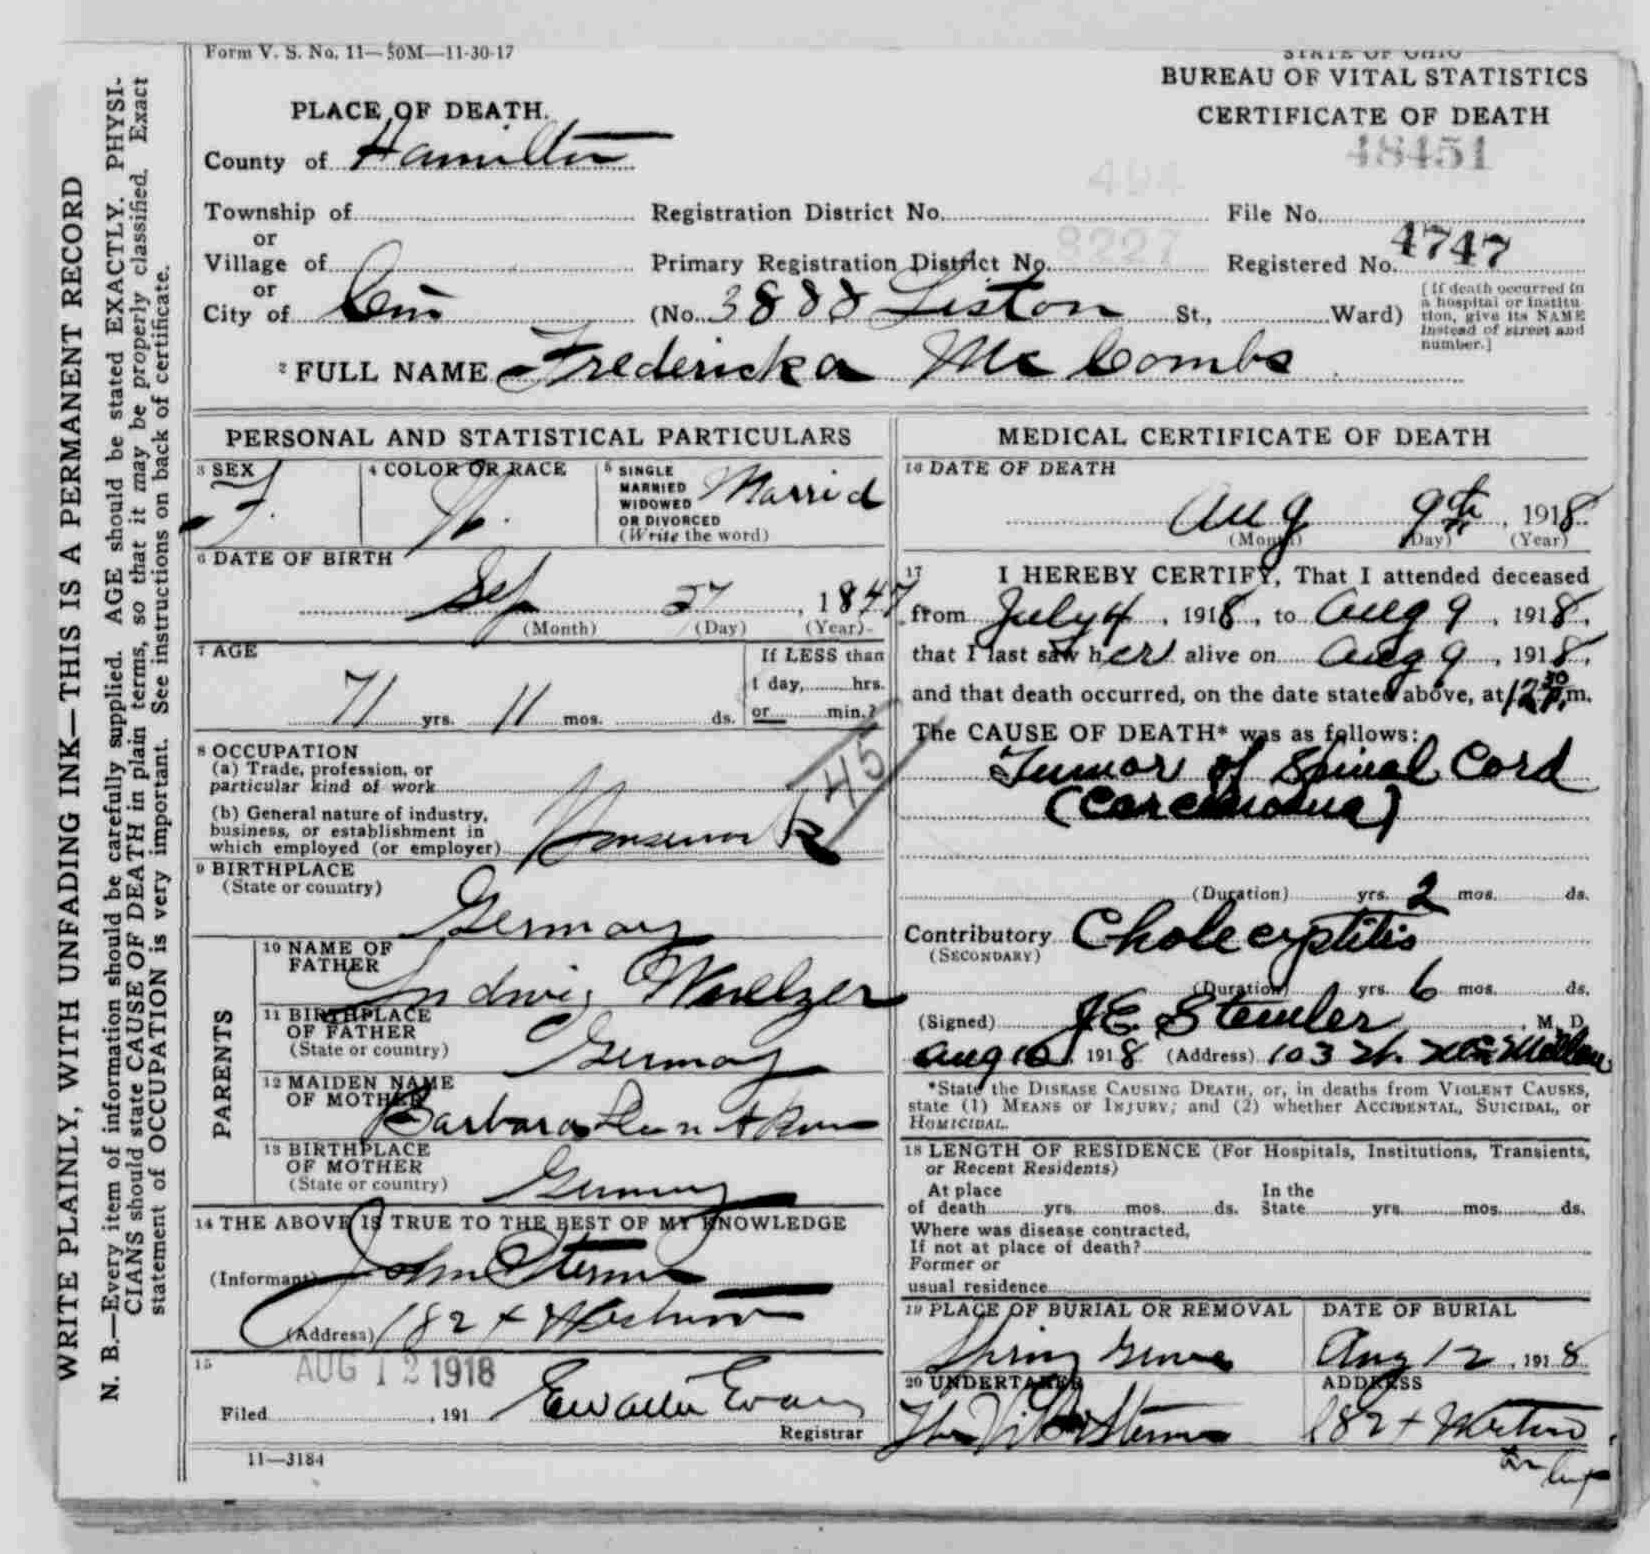 Form V. S. No. 11—50M—11-30-17
STATE OF OHIO
BUREAU OF VITAL STATISTICS
CERTIFICATE OF DEATH
48451
PLACE OF DEATH.
County of Hamilton
494
Township of Registration District No. File No.
or
8227
4747
Village of Primary Registration District No. Registered No.
or
City of Cin (No. 3888 Liston St., Ward)
[If death occurred in
a hospital or institu
tion, give its NAME
instead of street and
number.]
2 FULL NAME Fredericka McCombs
PERSONAL AND STATISTICAL PARTICULARS
3 SEX
F.
4 COLOR OR RACE
W.
5 SINGLE
MARRIED
WIDOWED
OR DIVORCED
(Write the word)
Married
6 DATE OF BIRTH
Sep 27, 1847
(Month) (Day) (Year)
7 AGE
If LESS than
1 day, hrs.
or min.?
71 yrs. 11 mos. ds.
8 OCCUPATION
(a) Trade, profession, or
particular kind of work
(b) General nature of industry,
business, or establishment in
which employed (or employer)
Housework
45
9 BIRTHPLACE
(State or country)
Germany
PARENTS
10 NAME OF
FATHER
Ludwig
11 BIRTHPLACE
OF FATHER
(State or country)
Germany
12 MAIDEN NAME
OF MOTHER
Barbara
13 BIRTHPLACE
OF MOTHER
(State or country)
Germany
14 THE ABOVE IS TRUE TO THE BEST OF MY KNOWLEDGE
(Informant) John
(Address) 1824
15
AUG 12 1918
Filed , 191 Evans
Registrar
11—3184
MEDICAL CERTIFICATE OF DEATH
16 DATE OF DEATH
Aug 9th, 1918
(Month) (Day) (Year)
17 I HEREBY CERTIFY, That I attended deceased
from July 4, 1918, to Aug 9, 1918,
that I last saw her alive on Aug 9, 1918,
and that death occurred, on the date stated above, at 12 30 P.m.
The CAUSE OF DEATH* was as follows:
Tumor of Spinal Cord
(Carcinoma)
(Duration) yrs. 2 mos. ds.
Contributory Cholecystitis
(SECONDARY)
(Duration) yrs. 6 mos. ds.
(Signed) J.E. Stemler, M. D.
Aug 10, 1918 (Address) 103 W. McMillan
*State the DISEASE CAUSING DEATH, or, in deaths from VIOLENT CAUSES,
state (1) MEANS OF INJURY; and (2) whether ACCIDENTAL, SUICIDAL, or
HOMICIDAL.
18 LENGTH OF RESIDENCE (For Hospitals, Institutions, Transients,
or Recent Residents)
At place
of death yrs. mos. ds.
In the
State yrs. mos. ds.
Where was disease contracted,
If not at place of death?
Former or
usual residence
19 PLACE OF BURIAL OR REMOVAL
Spring Grove
DATE OF BURIAL
Aug 12, 1918
20 UNDERTAKER
ADDRESS
1824
WRITE PLAINLY, WITH UNFADING INK—THIS IS A PERMANENT RECORD
N. B.—Every item of information should be carefully supplied. AGE should be stated EXACTLY. PHYSI-
CIANS should state CAUSE OF DEATH in plain terms, so that it may be properly classified. Exact
statement of OCCUPATION is very important. See instructions on back of certificate.